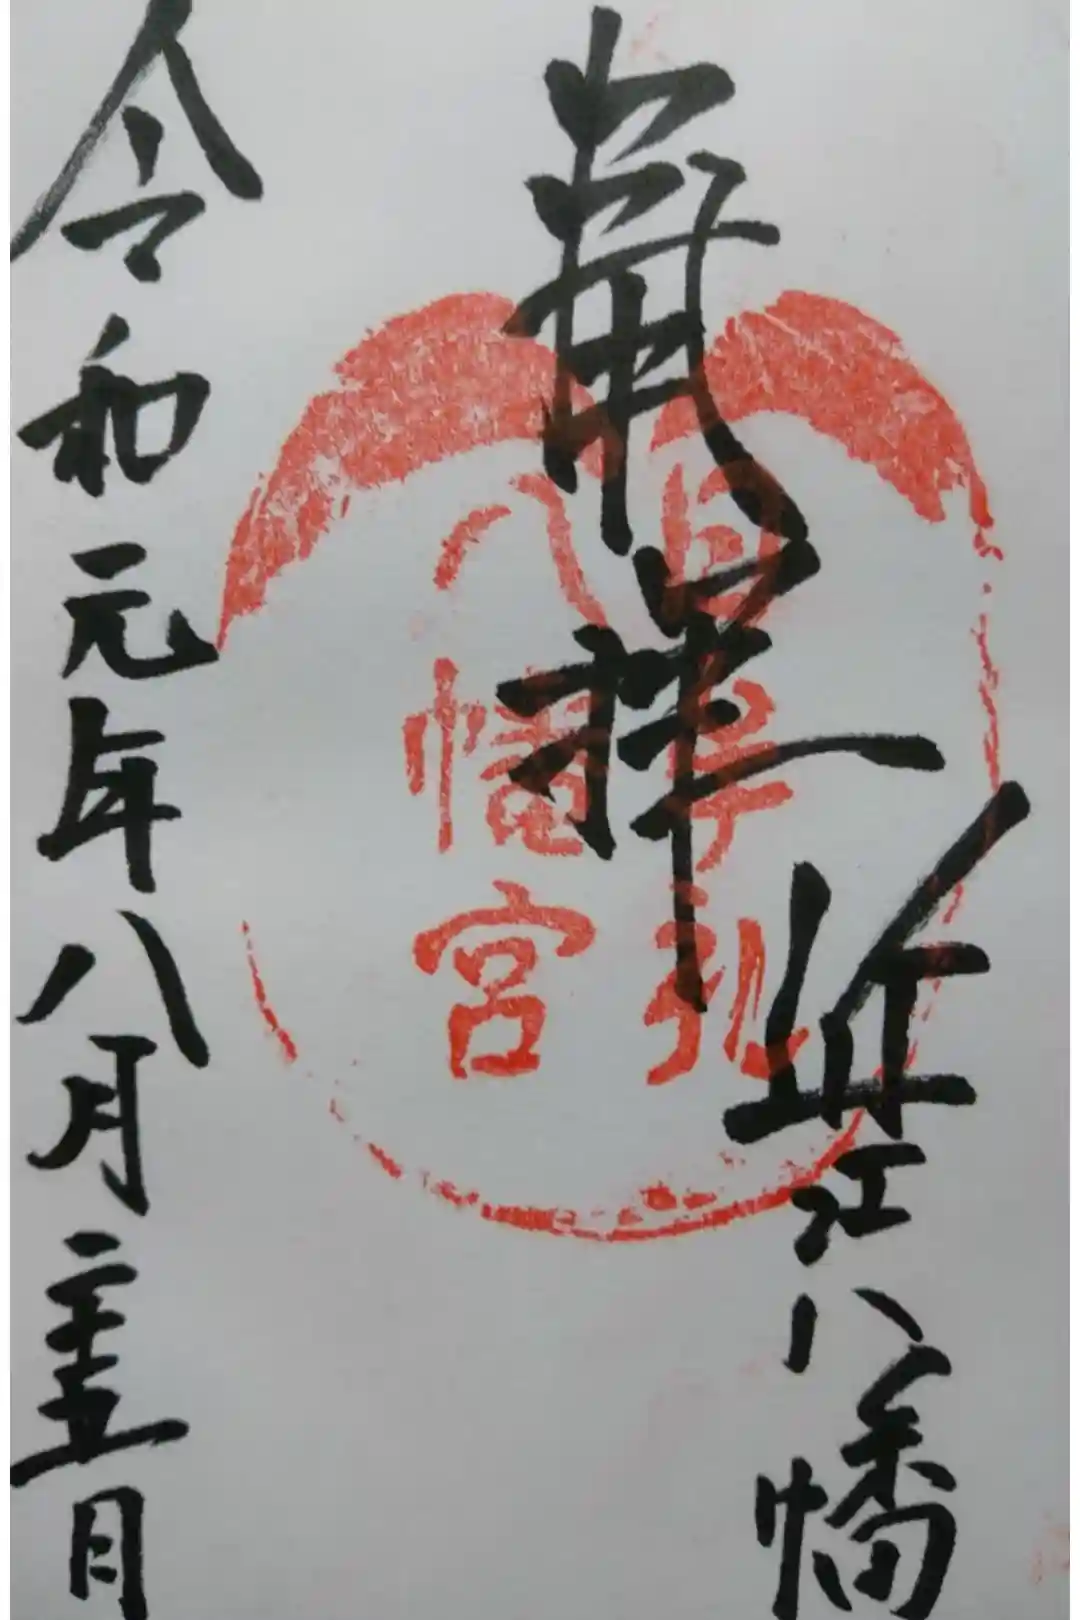 拝
近江八幡
日牟礼
八幡宮
令和元年八月二十五日